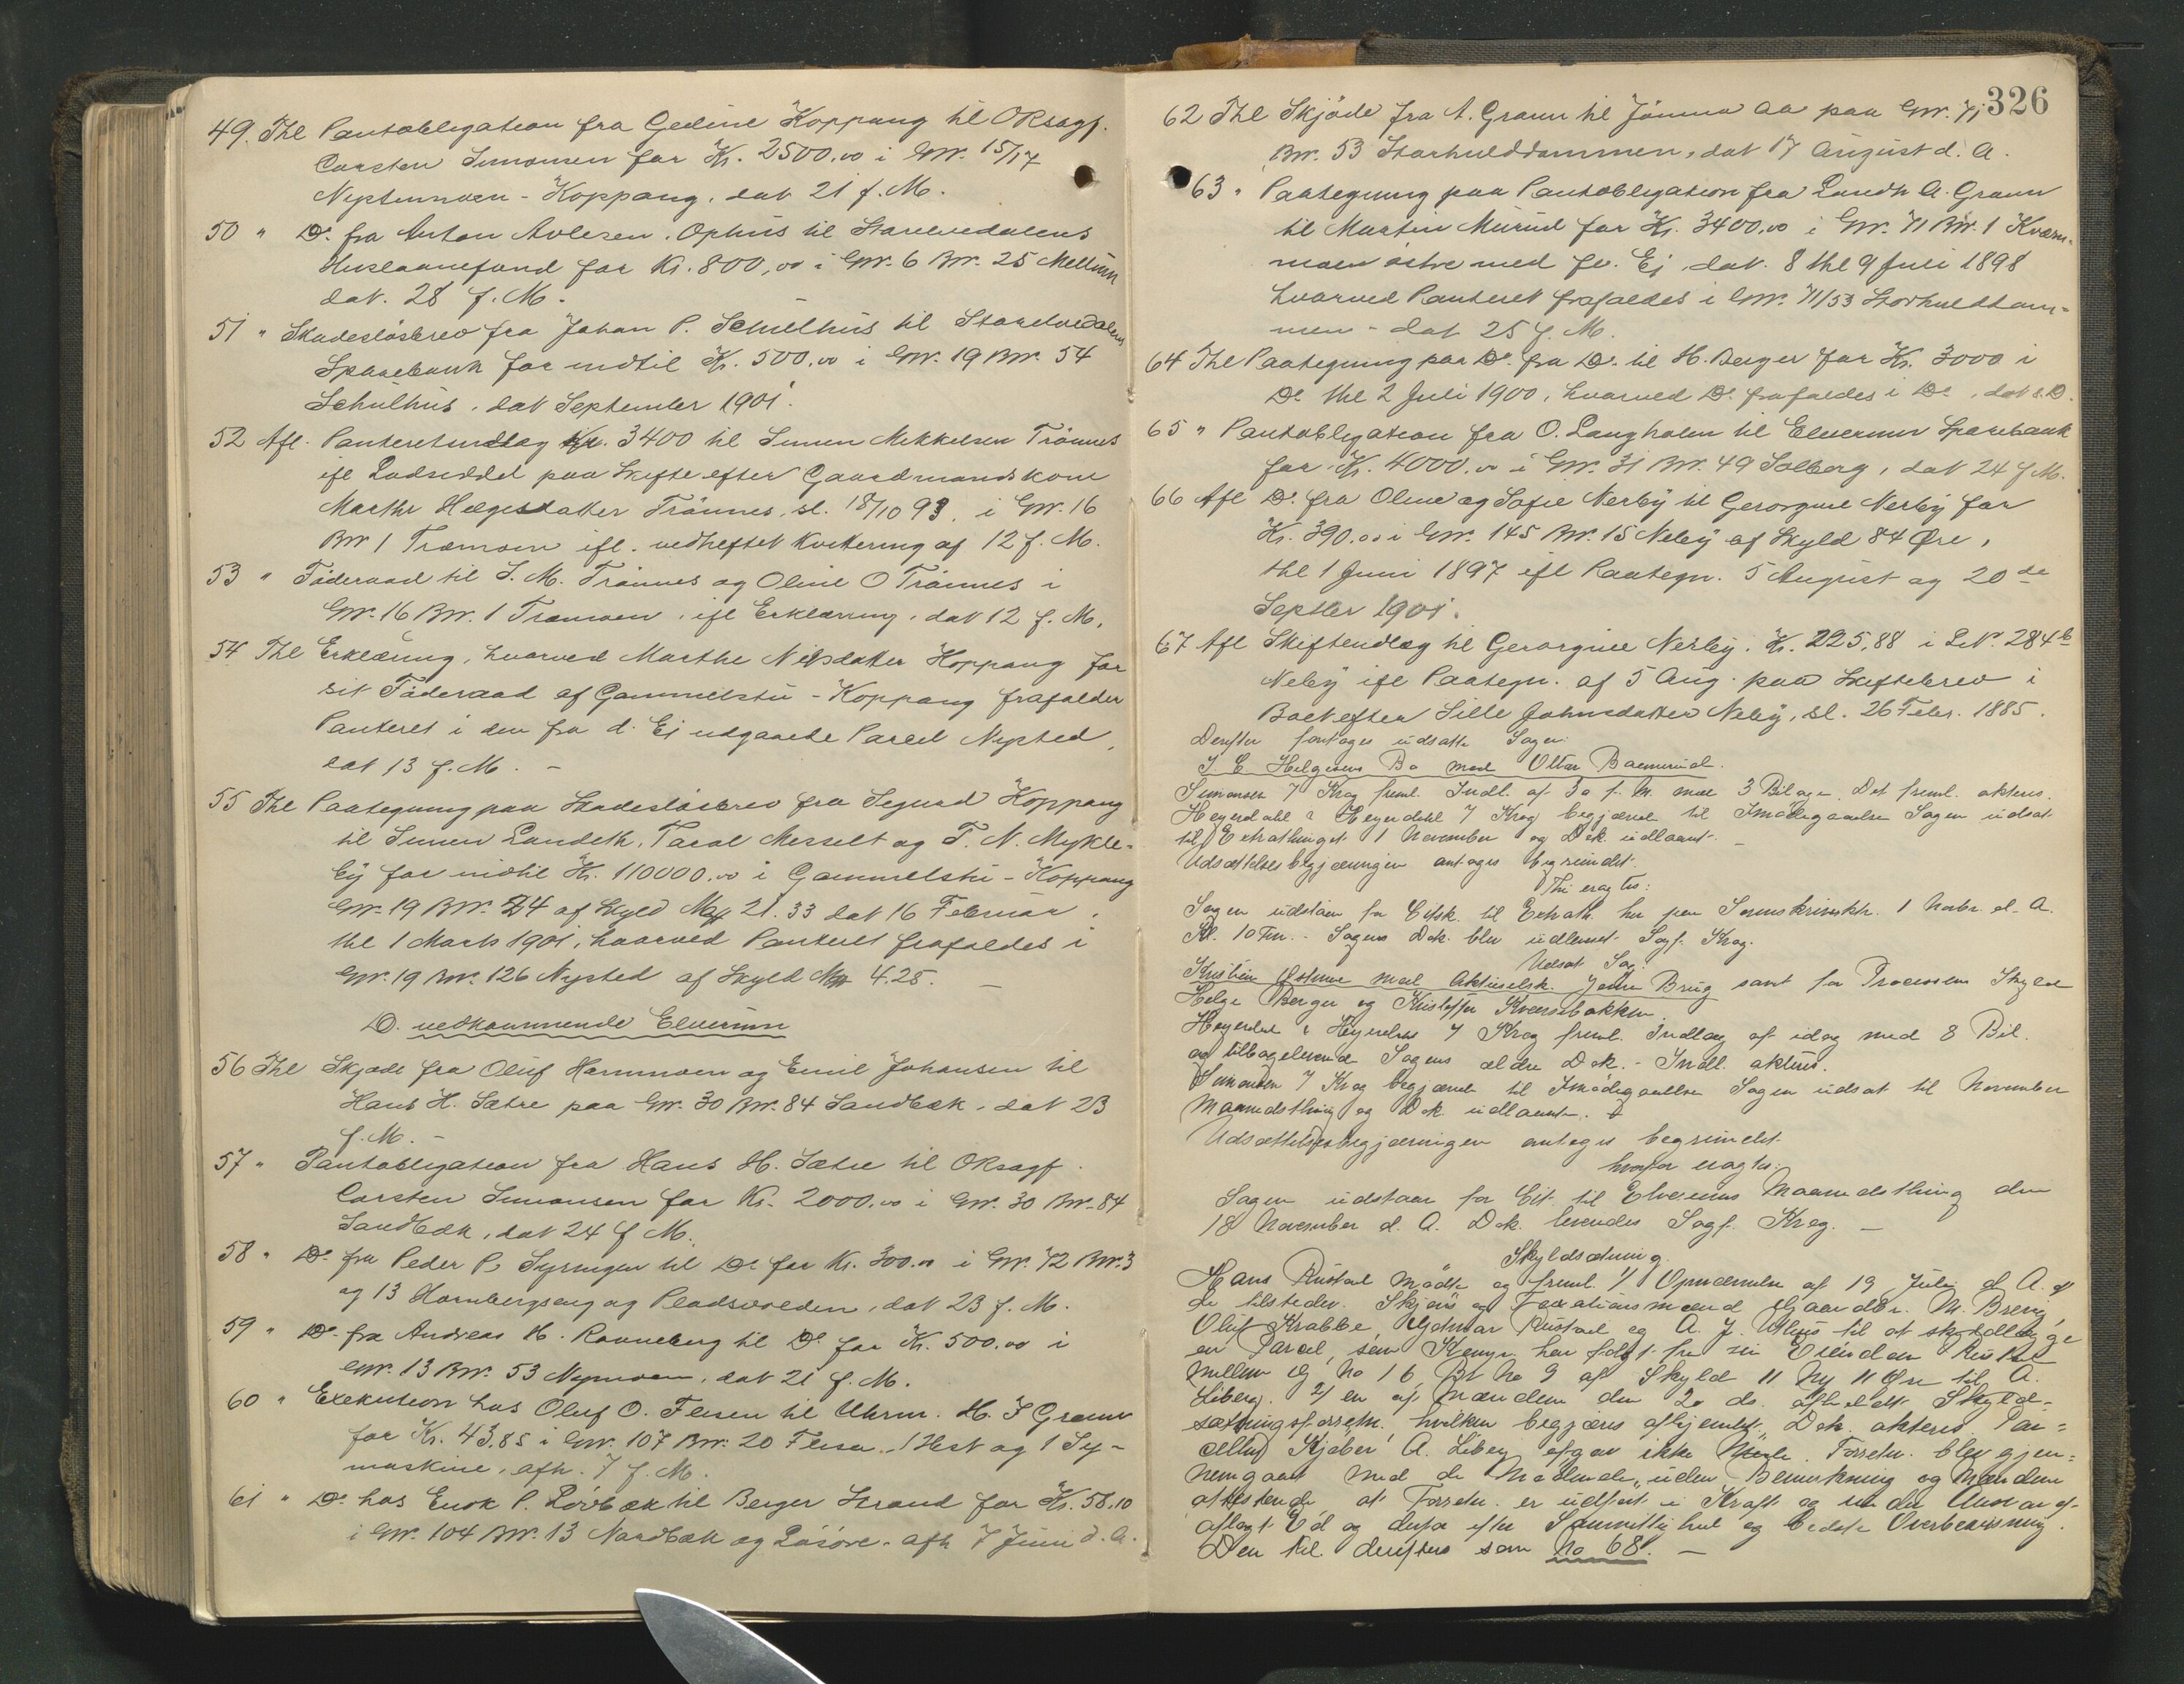 49. Thl Pantobligation fra Gedine Koppang til ORsagf.
Carsten Simonsen for Kr. 2500.00 i Gnr. 15/17
Neptunmoen - Koppang, dat 21 f. M.
50 " Do. fra Anton Avlesen Ophus til Storelvedalens
Huslaanefond for Kr. 800,00 i Gnr. 6 Bnr. 25 Mellum
dat. 28 f. M.
51 " Skadesløsbrev fra Johan P. Schulhus til Storelvedalens
Sparebank for indtil Kr. 500.00 i Gnr. 19 Bnr. 54
Schulhus, dat September 1901.
52 Afl. Panteretindlæg Kr. 3400 til Simen Mikkelsen Trønnes
ifl Lodseddel paa Skifte efter Gaardmandskone
Marthe Helgesdatter Trønnes, sl. 18/10 93, i Gnr. 16
Bnr 1 Træmoen ifl. vedheftet Kvittering af 12 f. M.
53 " Føderaad til S. M. Trønnes og Oline O Trønnes i
Gnr. 16 Bnr. 1 Træmoen, ifl Erklæring, dat 12 f. M.
54 Thl Erklæring, hvorved Marthe Nilsdatter Koppang for
sit Føderaad af Gammelstu - Koppang frafalder
Panteret i den fra d. Ej udgaaede Parcel Nysted,
dat 13 f. M. -
55 Thl Paategning paa Skadesløsbrev fra Sigurd Koppang
til Simen Landeth, Taral Messelt og T. N. Mykle-
by for indtil Kr. 110000.00 i Gammelstu - Koppang
Gnr. 19 Bnr. 24 af Skyld Mk 21.33 dat 16 Februar,
thl 1 Marts 1901, hvorved Panteret frafaldes i
Gnr. 19 Bnr. 126 Nysted af Skyld Mk 4.25. -
D. vedkommende Elverum
56 Thl Skjøde fra Oluf Hornmoen og Emil Johansen til
Hans H. Sætre paa Gnr. 30 Bnr. 84 Sandbæk, dat 23
f. M. -
57 " Pantobligation fra Hans H. Sætre til ORsagf.
Carsten Simonsen for Kr. 2000.00 i Gnr. 30 Bnr. 84
Sandbæk, dat 24 f M.
58 " Do. fra Peder P. Syringen til Do for Kr. 300.00 i Gnr. 72 Bnr. 3
og 13 Hornbergseng og Pladsvolden, dat 23 f. M.
59 " Do. fra Andreas K. Ronneberg til Do for Kr. 500.00 i
Gnr. 13 Bnr. 53 Nymoen, dat 21 f. M.
60 " Exekution hos Oluf O. Flisen til Uhrm. H. J Gramm
for Kr. 43.85 i Gnr. 107 Bnr. 20 Flisa, 1 Hest og 1 Sy-
maskine, afh. 7 f. M.
61 " Do. hos Enok P. Løvbæk til Berger Strand for Kr. 58.10
i Gnr. 104 Bnr. 13 Nordbæk og Løsøre. afh 7 Juni d. A.
326
62 Thl Skjøde fra A. Graun til Jømna aa paa Gnr. 71
Bnr. 53 Storhulddammen, dat 17 August d. A.
63 " Paategning paa Pantobligation fra Landh A. Graun
til Martin Murud for Kr. 3400.00 i Gnr. 71 Bnr. 1 Kværn-
moen østre med fl. Ej, dat. 8 thl 9 Juli 1898
hvorved Panteret frafaldes i Gnr. 71/53 Storhulddam-
men - dat 25 f. M.
64 Thl Paategning paa Do. fra Do. til H. Berger for Kr. 3000 i
Do thl 2 Juli 1900, hvorved Do. frafaldes i Do, dat s. D.
65 " Pantobligation fra O. Langholen til Elverums Sparebank
for Kr. 4000.00 i Gnr. 31 Bnr. 49 Solberg, dat 24 f M.
66 Afl Do. fra Oline og Sofie Nerby til Georgine Nerby for
Kr. 390.00 i Gnr. 145 Bnr. 15 Neby af Skyld 84 Øre,
thl 1 Juni 1897 ifl Paategn. 5 August og 20de
Septbr 1901.
67 Afl Skifteudlæg til Georgine Nerby, Kr. 225,88 i LNo. 284b
Neby ifl Paategn. af 5 Aug. paa Skiftebrev i
Boet efter Sille Johnsdatter Neby, sl. 26 Febr. 1885.
Derefter foretages udsatte Sager:
J E Helgesens Bo mod Ottar Baemmerud.
Simonsen 7 Krog freml. Indl. af 30 f. M. med 3 Bilage. Det freml. akteres.
Heyerdahl & Heyerdahl 7 Krog begjærede til Imødegaaelse Sagen udsat
til Extrathinget 1 November og Dok. udlaant. -
Udsættelsesbegjæringen antages begrundet.
Thi eragtes:
Sagen udstaar for Citsk. til Extrath. her paa Sorenskriverktr. 1 Novbr. d. A.
Kl. 10 Fm. - Sagens Dok. blev udlaant Sagf. Krog.
Udsat Sag:
Kristine Østmoe mod Aktieselsk. Jømna Brug samt for Processens Skyld
Helge Berger og Kristoffer Kværnbakken.
Heyerdal & Heyerdahl 7 Krog freml. Indlæg af idag med 8 Bil.
og tilbageleverede Sagens ældre Dok. - Indl. akteres.
Simonsen 7 Krog begjærede til Imødegaaelse Sagen udsat til November
Maanedsthing og Dok. udlaante.
Udsættelsesbegjæringen antages begrundet
hvorfor eragtes:
Sagen udstaar for Cit. til Elverums Maanedsthing den
18 November d. A. Dok. leveredes Sagf. Krog. -
Skyldsætning
Hans Rustad mødte og freml. 1/ Opnævnelse af 19 Juli d. A. af
de tilstedev. Skjøns og Taxationsmænd Gaardbr. M. Breny,
Oluf Krabbe, Hjalmar Rustad og A. J. Uthus til at skyldlægge
en Parcel, som Komp. har solgt fra sin Eiendom Rustad
mellem G No 16, Br No 9 af Skyld 11 Ny 11 Øre til A.
Liberg. 2/ en af Mændene den 20 ds. afholdt Skyld-
sætningsforretn. hvilken begjæres afhjemlet. Dok. akteres. Par-
cellens Kjøber A. Liberg afgav ikke Møde. Forretn. blev gjen-
nemgaaet med de Mødende, uden Bemerkning og Mændene
attesterede at Forretn. er udført i Kraft og under Ansvar af
aflagt Ed og derfor efter Samvittighed og bedste Overbevisning.
Den thl. derefter som No 68. -